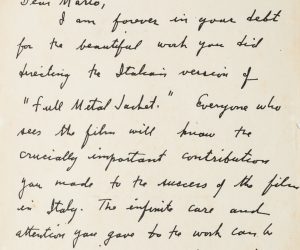 Dear Mario,
I am forever in your debt
for the beautiful work you did
directing the Italian version of
"Full Metal Jacket." Everyone who
sees the film will know the
crucially important contribution
you made to the success of the film
in Italy. The infinite care and
attention you gave to the work can be